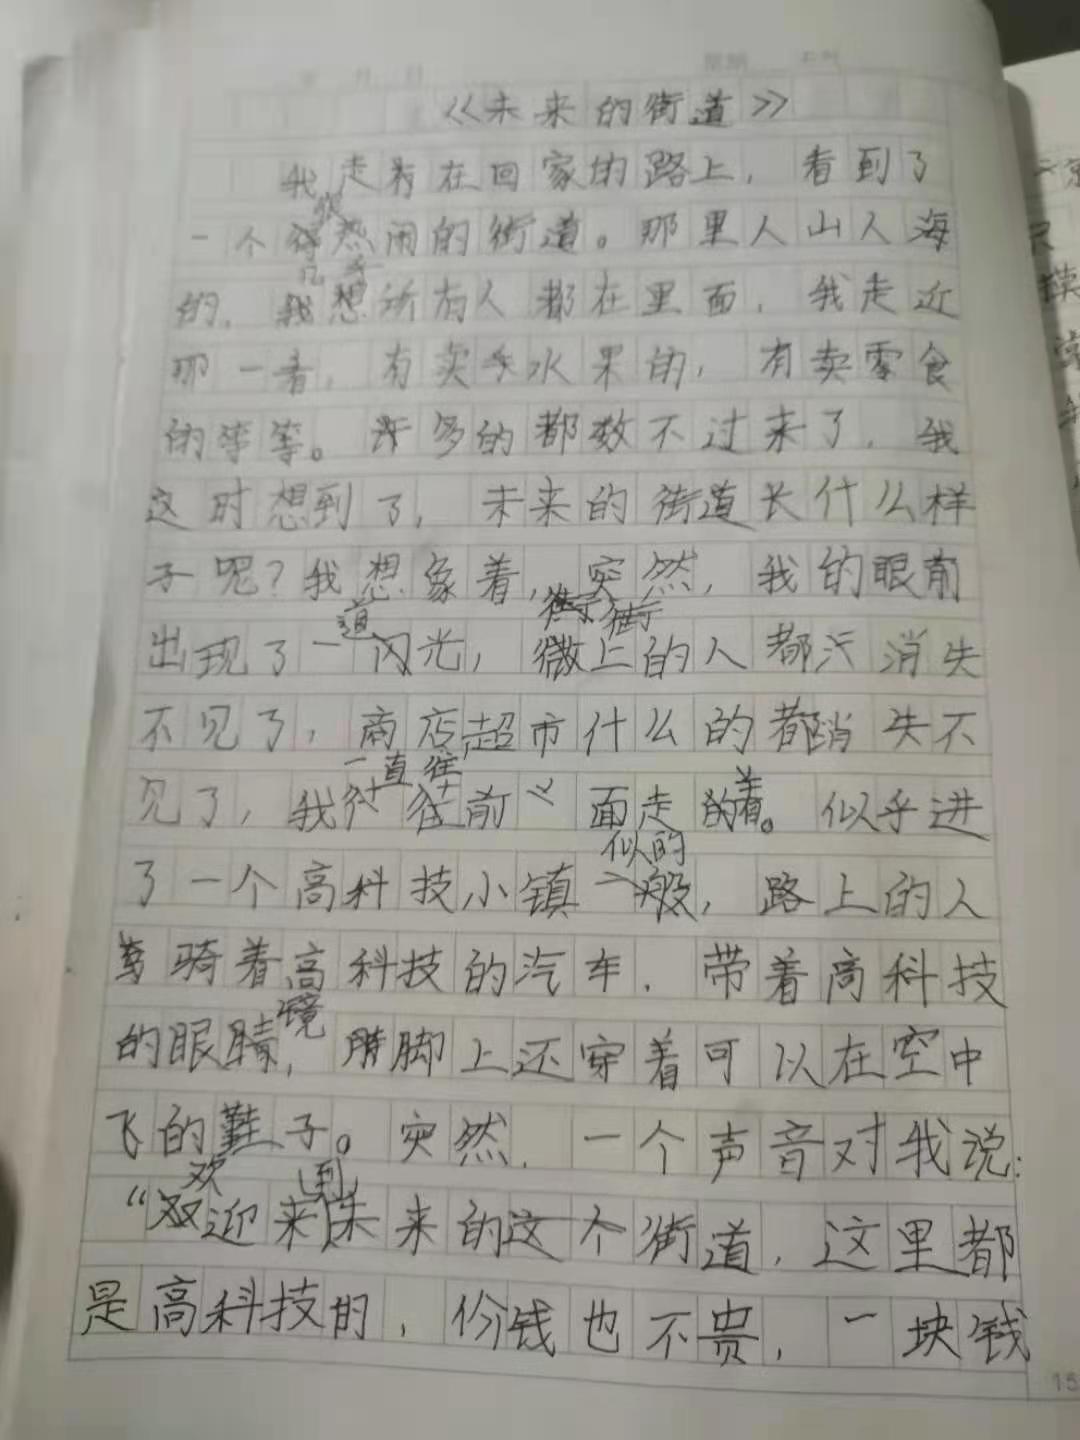 《未来的街道》
我走着在回家的路上，看到了
一个很热闹的街道。那里人山人海
的，几乎所有人都在里面，我走近
那一看，有卖水果的，有卖零食
的等等。许多的都数不过来了，我
这时想到了，未来的街道长什么样
子呢？我想象着，突然，我的眼前
出现了一道闪光，街上的人都消失
不见了，商店超市什么的都消失不
见了，我一直往前面走着。似乎进
了一个高科技小镇似的，路上的人
骑着高科技的汽车，带着高科技
的眼镜，脚上还穿着可以在空中
飞的鞋子。突然，一个声音对我说：
“欢迎来到未来的这个街道，这里都
是高科技的，价钱也不贵，一块钱
15